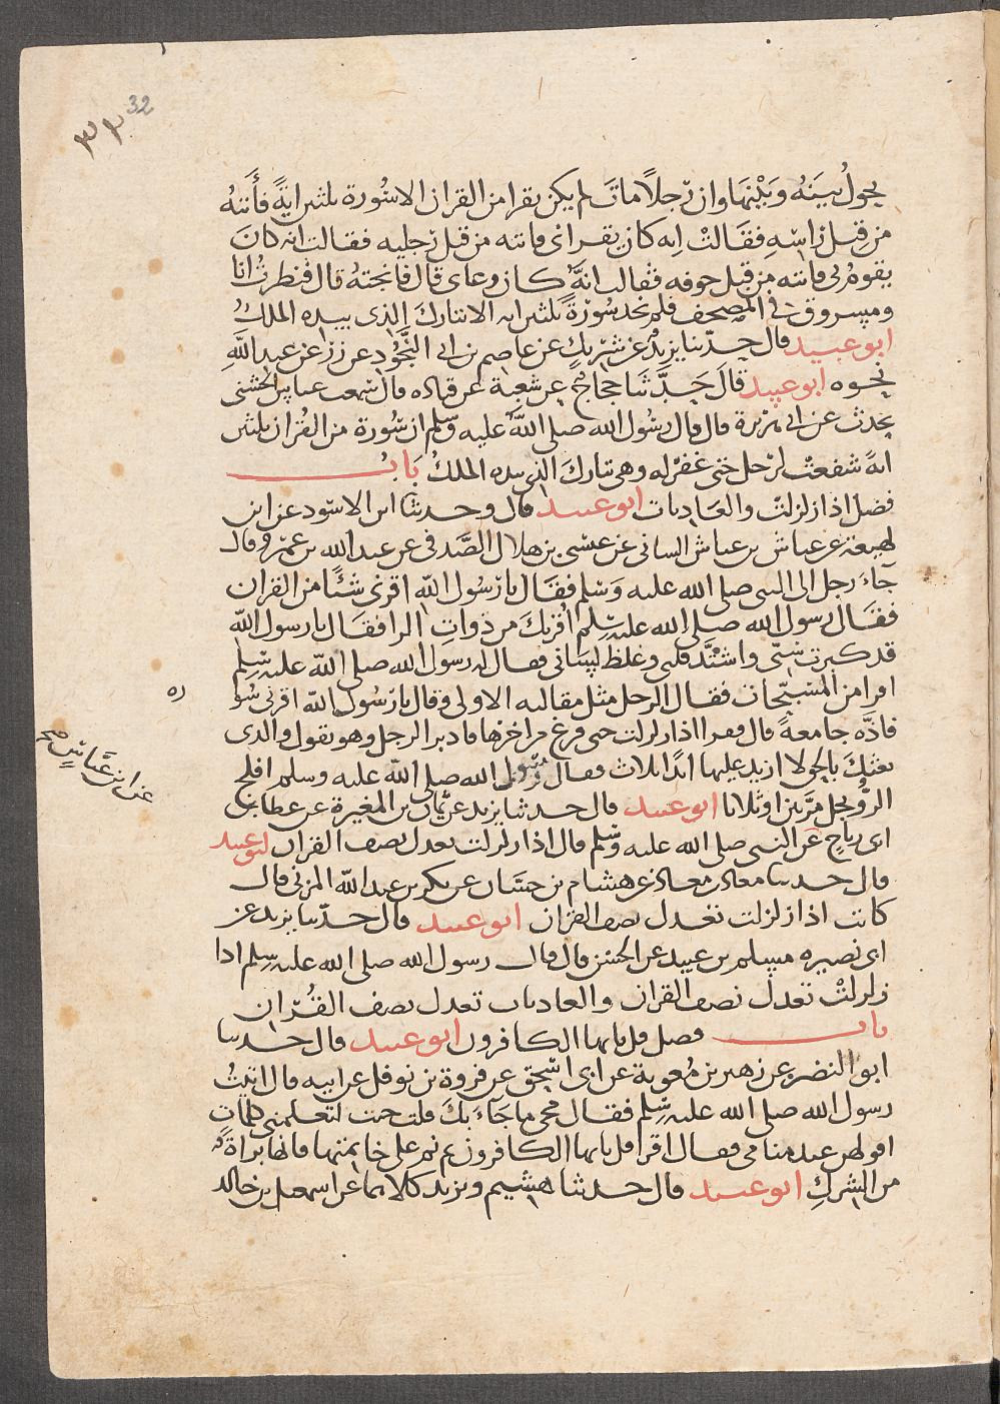 32
٣٢
يحول بينه وبينها وان رجلاً مات لم يكن يقرا من القران الا سُورة ثلثين ايةً فأتته
من قبل راسه فقالت انه كان يقرانى فاتته من قبل رجليه فقالت انه كان
يقوم بى فاتته من قبل جوفه فقالت انه كان وعاى قال فانجته قال فنظرت انا
ومسروق فى المصحف فلم نجد سُورة ثلثين اية الا تبارك الذى بيده الملك
ابو عبيد قال حدثنا يزيد عن شريك عن عاصم بن ابى النجود عن زر عن عبد الله
نحوه ابو عبيد قال حدثنا حجاج عن شعبة عن قتاده قال سمعت عباس الجشمى
يحدث عن ابى هريرة قال قال رسُول الله صلى الله عليه وسلم ان سُورة من القُران ثلثين
ايةً شفعت لرجل حتى غفر له وهى تبارك الذى بيده الملك باب
فضل اذا زلزلت والعاديات ابو عبيد قال وحدثنا ابو الاسود عن ابن
لهيعة عن عياش بن عباس القتبانى عن عيسى بن هلال الصدفى عن عبد الله بن عمرو قال
جآء رجل الى النبى صلى الله عليه وسلم فقال يا رسُول الله اقرئنى شيئًا من القران
فقال رسول الله صلى الله عليه وسلم أقرئك من ذوات الرا فقال يا رسول الله
قد كبرت سنى واشتد قلبى وغلظ لسانى فقال له رسول الله صلى الله عليه وسلم
اقرا من المسبحات فقال الرجل مثل مقالته الاولى وقال يا رسُول الله اقرئنى سو
ره
فاذه جامعةً قال فقرا اذا زلزلت حتى فرغ من اخرها فادبر الرجل وهو يقول والذى
بعثك بالحق لا ازيد عليها ابدًا ثلاث فقال رسول الله صلى الله عليه وسلم افلح
الرويجل مرتين او ثلاثا ابو عبيد قال حدثنا يزيد عن يمان بن المغيرة عن عطا بن
ابى رباح عن النبى صلى الله عليه وسلم قال اذا زلزلت تعدل نصف القران ابو عبيد
عن ابن عباس صح
قال حدثنا معاذ بن معاذ عن هشام بن حسان عن بكر بن عبد الله المزنى قال
كانت اذا زلزلت تعدل نصف القران ابو عبيد قال حدثنا يزيد عن
ابى نصيره مسلم بن عبيد عن الحسن قال قال رسول الله صلى الله عليه وسلم اذا
زلزلت تعدل نصف القران والعاديات تعدل نصف القُران
باب فضل قل يايها الكافرون ابو عبيد قال حدثنا
ابو النضر عن زهير بن معوية عن ابى اسحق عن فروة بن نوفل عن ابيه قال اتيت
رسول الله صلى الله عليه وسلم فقال مجى ما جآء بك قلت جيت لتعلمنى كلمات
اقولهن عند منامى فقال اقرا قل يايها الكافرون ثم نم على خاتمتها فانها براة
من الشرك ابو عبيد قال حدثنا هشيم ويزيد كلاهما عن اسمعيل بن خالد